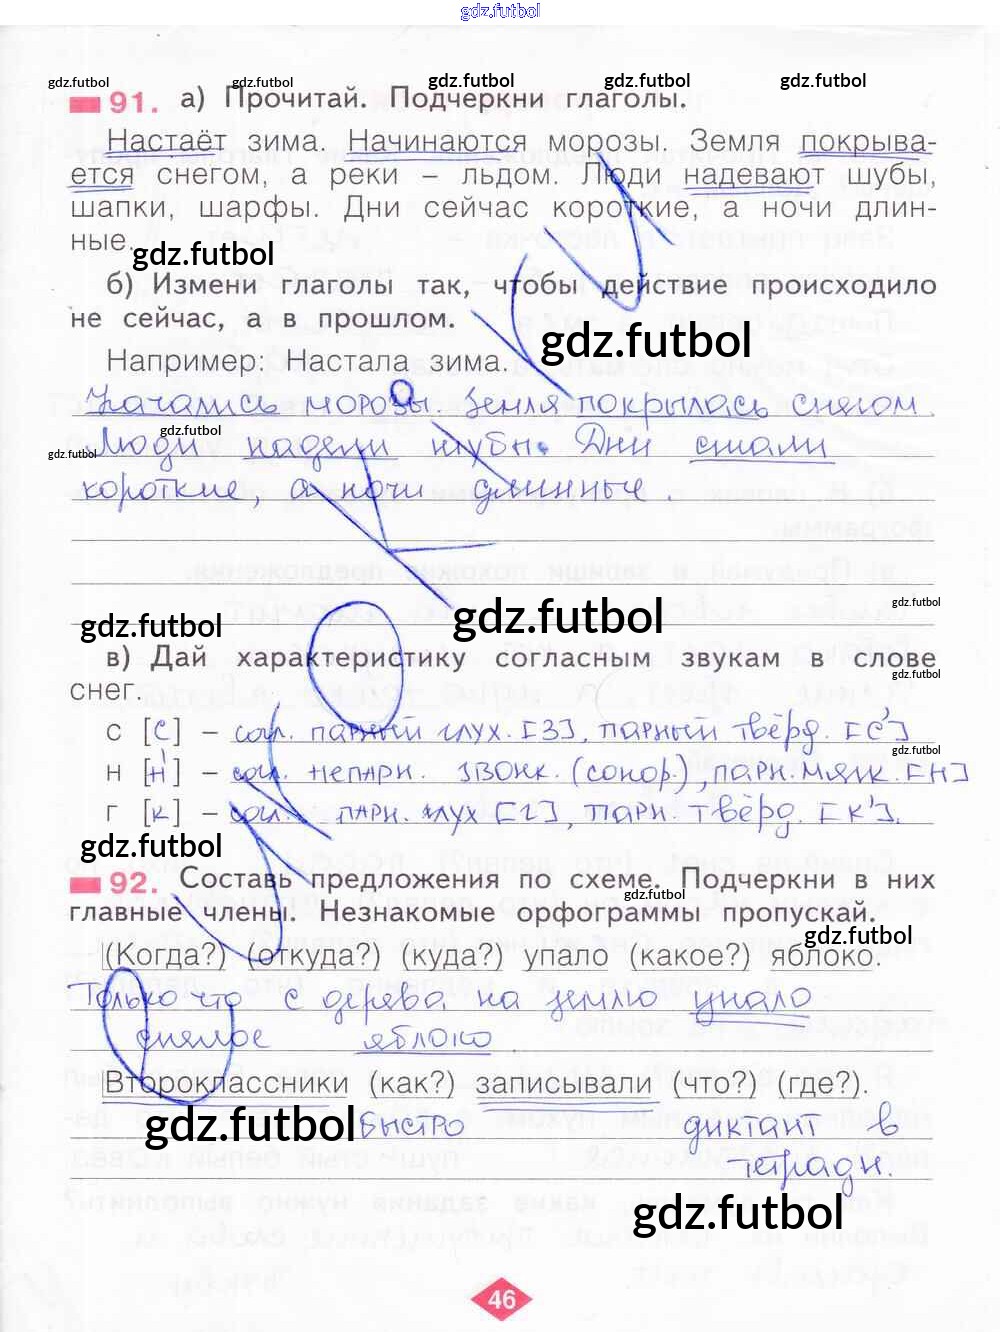 gdz.futbol
gdz.futbol gdz.futbol gdz.futbol gdz.futbol gdz.futbol
91. а) Прочитай. Подчеркни глаголы.
Настаёт зима. Начинаются морозы. Земля покрыва-
ется снегом, а реки – льдом. Люди надевают шубы,
шапки, шарфы. Дни сейчас короткие, а ночи длин-
ные.
gdz.futbol
б) Измени глаголы так, чтобы действие происходило
не сейчас, а в прошлом.
gdz.futbol
Например: Настала зима.
Начались морозы. Земля покрылась снегом.
gdz.futbol
Люди надели шубы. Дни стали
gdz.futbol
короткие, а ночи длинные.
gdz.futbol
gdz.futbol
gdz.futbol
в) Дай характеристику согласным звукам в слове
gdz.futbol
снег.
с [с] – согл. парный глух. [з], парный твёрд. [с']
gdz.futbol
н [н'] – согл. непарн. звонк. (сонор.), парн. мягк. [н]
г [к] – согл. парн. глух [г], парн. твёрд. [к'].
gdz.futbol
92. Составь предложения по схеме. Подчеркни в них
gdz.futbol
главные члены. Незнакомые орфограммы пропускай.
gdz.futbol
(Когда?) (откуда?) (куда?) упало (какое?) яблоко.
Только что с дерева на землю упало
спелое яблоко
Второклассники (как?) записывали (что?) (где?).
gdz.futbol
быстро диктант в
тетради.
gdz.futbol
46